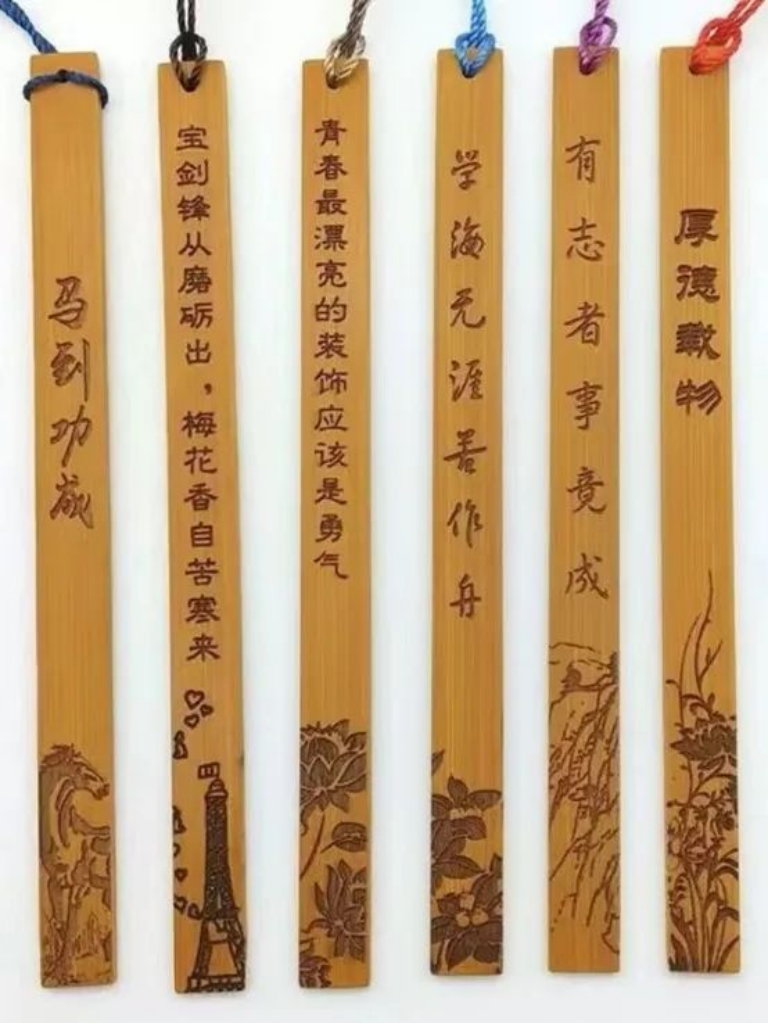 马到功成
宝剑锋从磨砺出，梅花香自苦寒来
青春最漂亮的装饰应该是勇气
学海无涯苦作舟
有志者事竟成
厚德载物